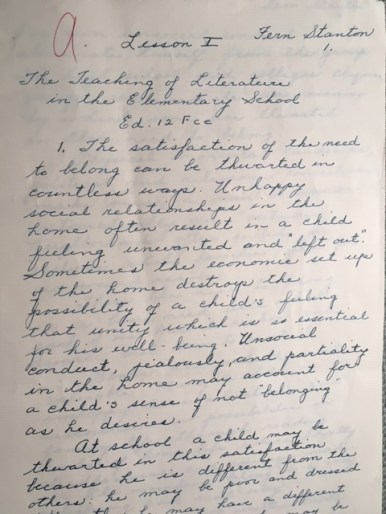 A.
Lesson I
Fern Stanton
1.
The Teaching of Literature
in the Elementary School
Ed. 12 Fce
1. The satisfaction of the need
to belong can be thwarted in
countless ways. Unhappy
social relationships in the
home often result in a child
feeling unwanted and "left out".
Sometimes the economic set up
of the home destroys the
possibility of a child's feeling
that unity which is so essential
for his well-being. Unsocial
conduct, jealously, and partiality
in the home may account for
a child's sense of not "belonging"
as he desires.
At school a child may be
thwarted in this satisfaction
because he is different from the
others: he may be poor and dressed
he may have a different
may be